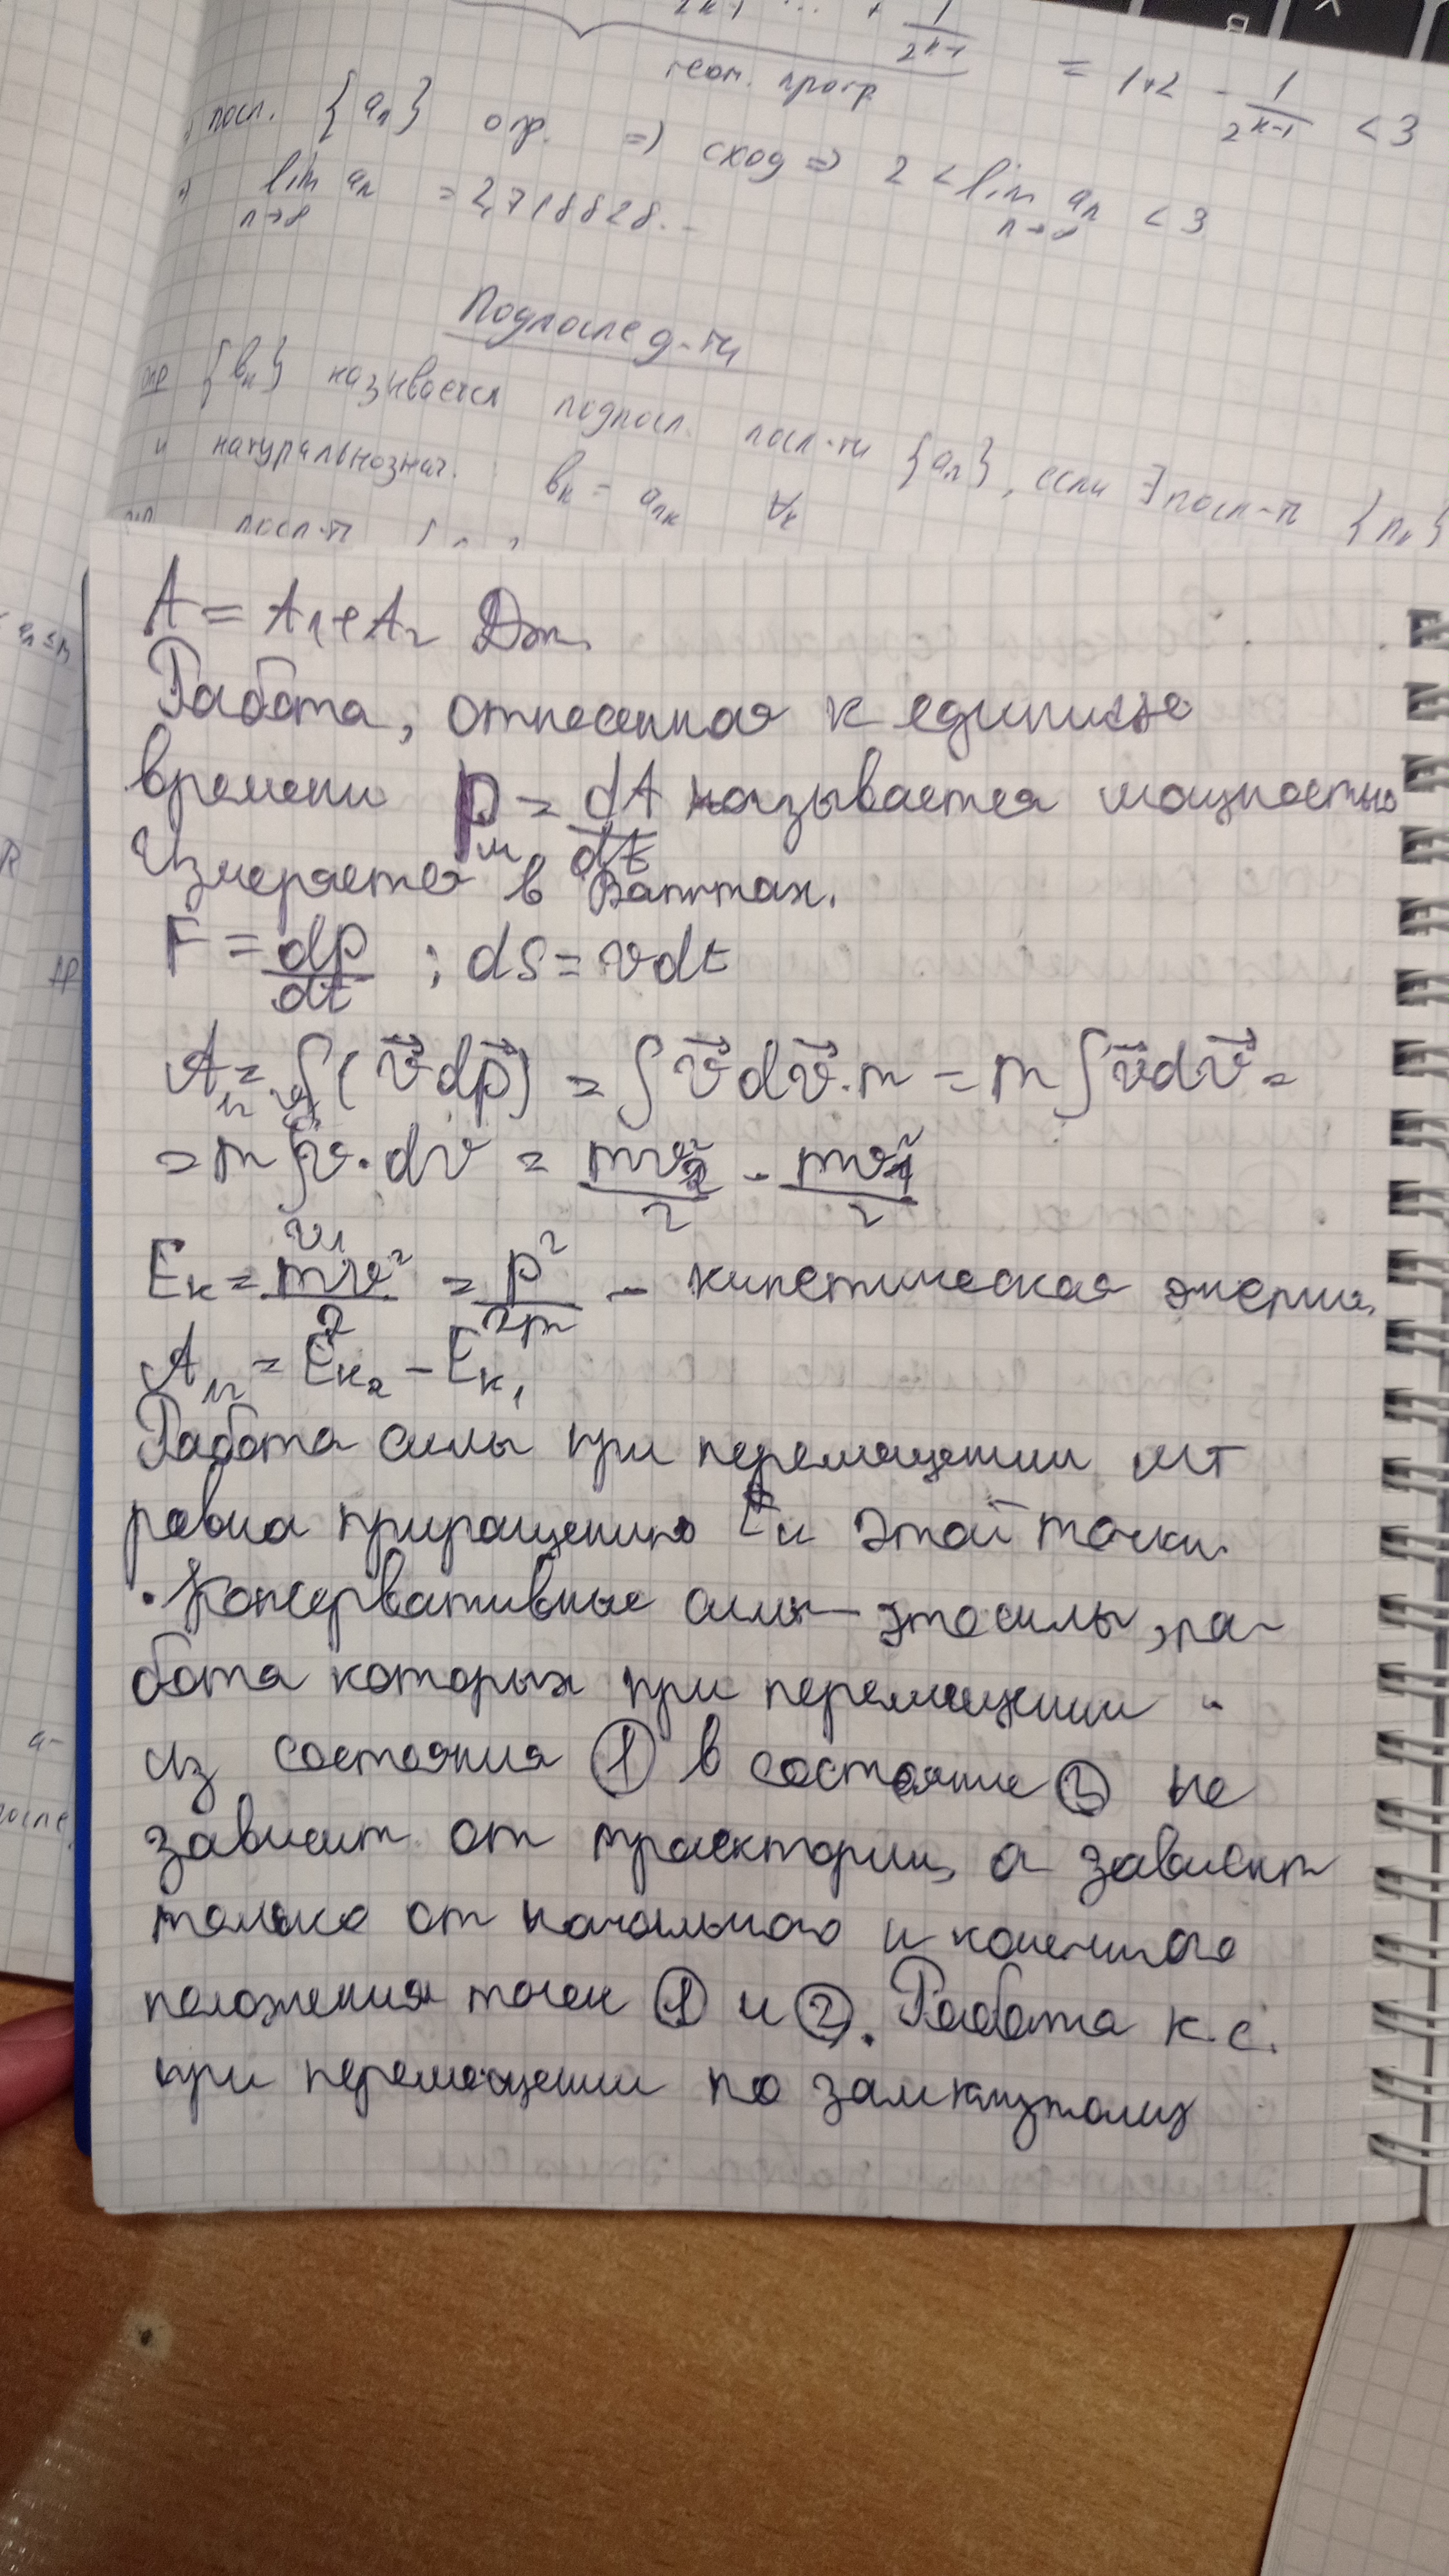 2k-1 ... + 1/2^(k-1) = 1+2 - 1/2^(k-1) < 3
геом. прогр.
посл. {aₙ} огр. => сход => 2 < lim aₙ < 3
n→∞
lim aₙ = 2,718828...
n→∞
Подпослед-ти
опр {bₖ} называется подпосл. посл-ти {aₙ}, если ∃ посл-ть {nₖ}
и натуральнознач. : bₖ = aₙₖ ∀k
посл-ть
aₙ ≤ M
R
а-
после
A = A₁+A₂ Дж.
Работа, отнесенная к единице
времени Pₘ = dA/dt называется мощностью
Измеряется в Ваттах.
F = dp/dt ; dS = vdt
A₁₂ = ∫(v⃗dp⃗) = ∫v⃗dv⃗·m = m∫v⃗dv⃗ =
v₂
= m∫v·dv = mv₂²/2 - mv₁²/2
v₁
Eк = mv²/2 = p²/2m - кинетическая энергия.
A₁₂ = Eк₂ - Eк₁
Работа силы при перемещении МТ
равна приращению Eк этой точки.
· Консервативные силы - это силы, ра-
бота которых при перемещении
из состояния ① в состояние ② не
зависит от траектории, а зависит
только от начального и конечного
положения точек ① и ②. Работа к.с.
при перемещении по замкнутому